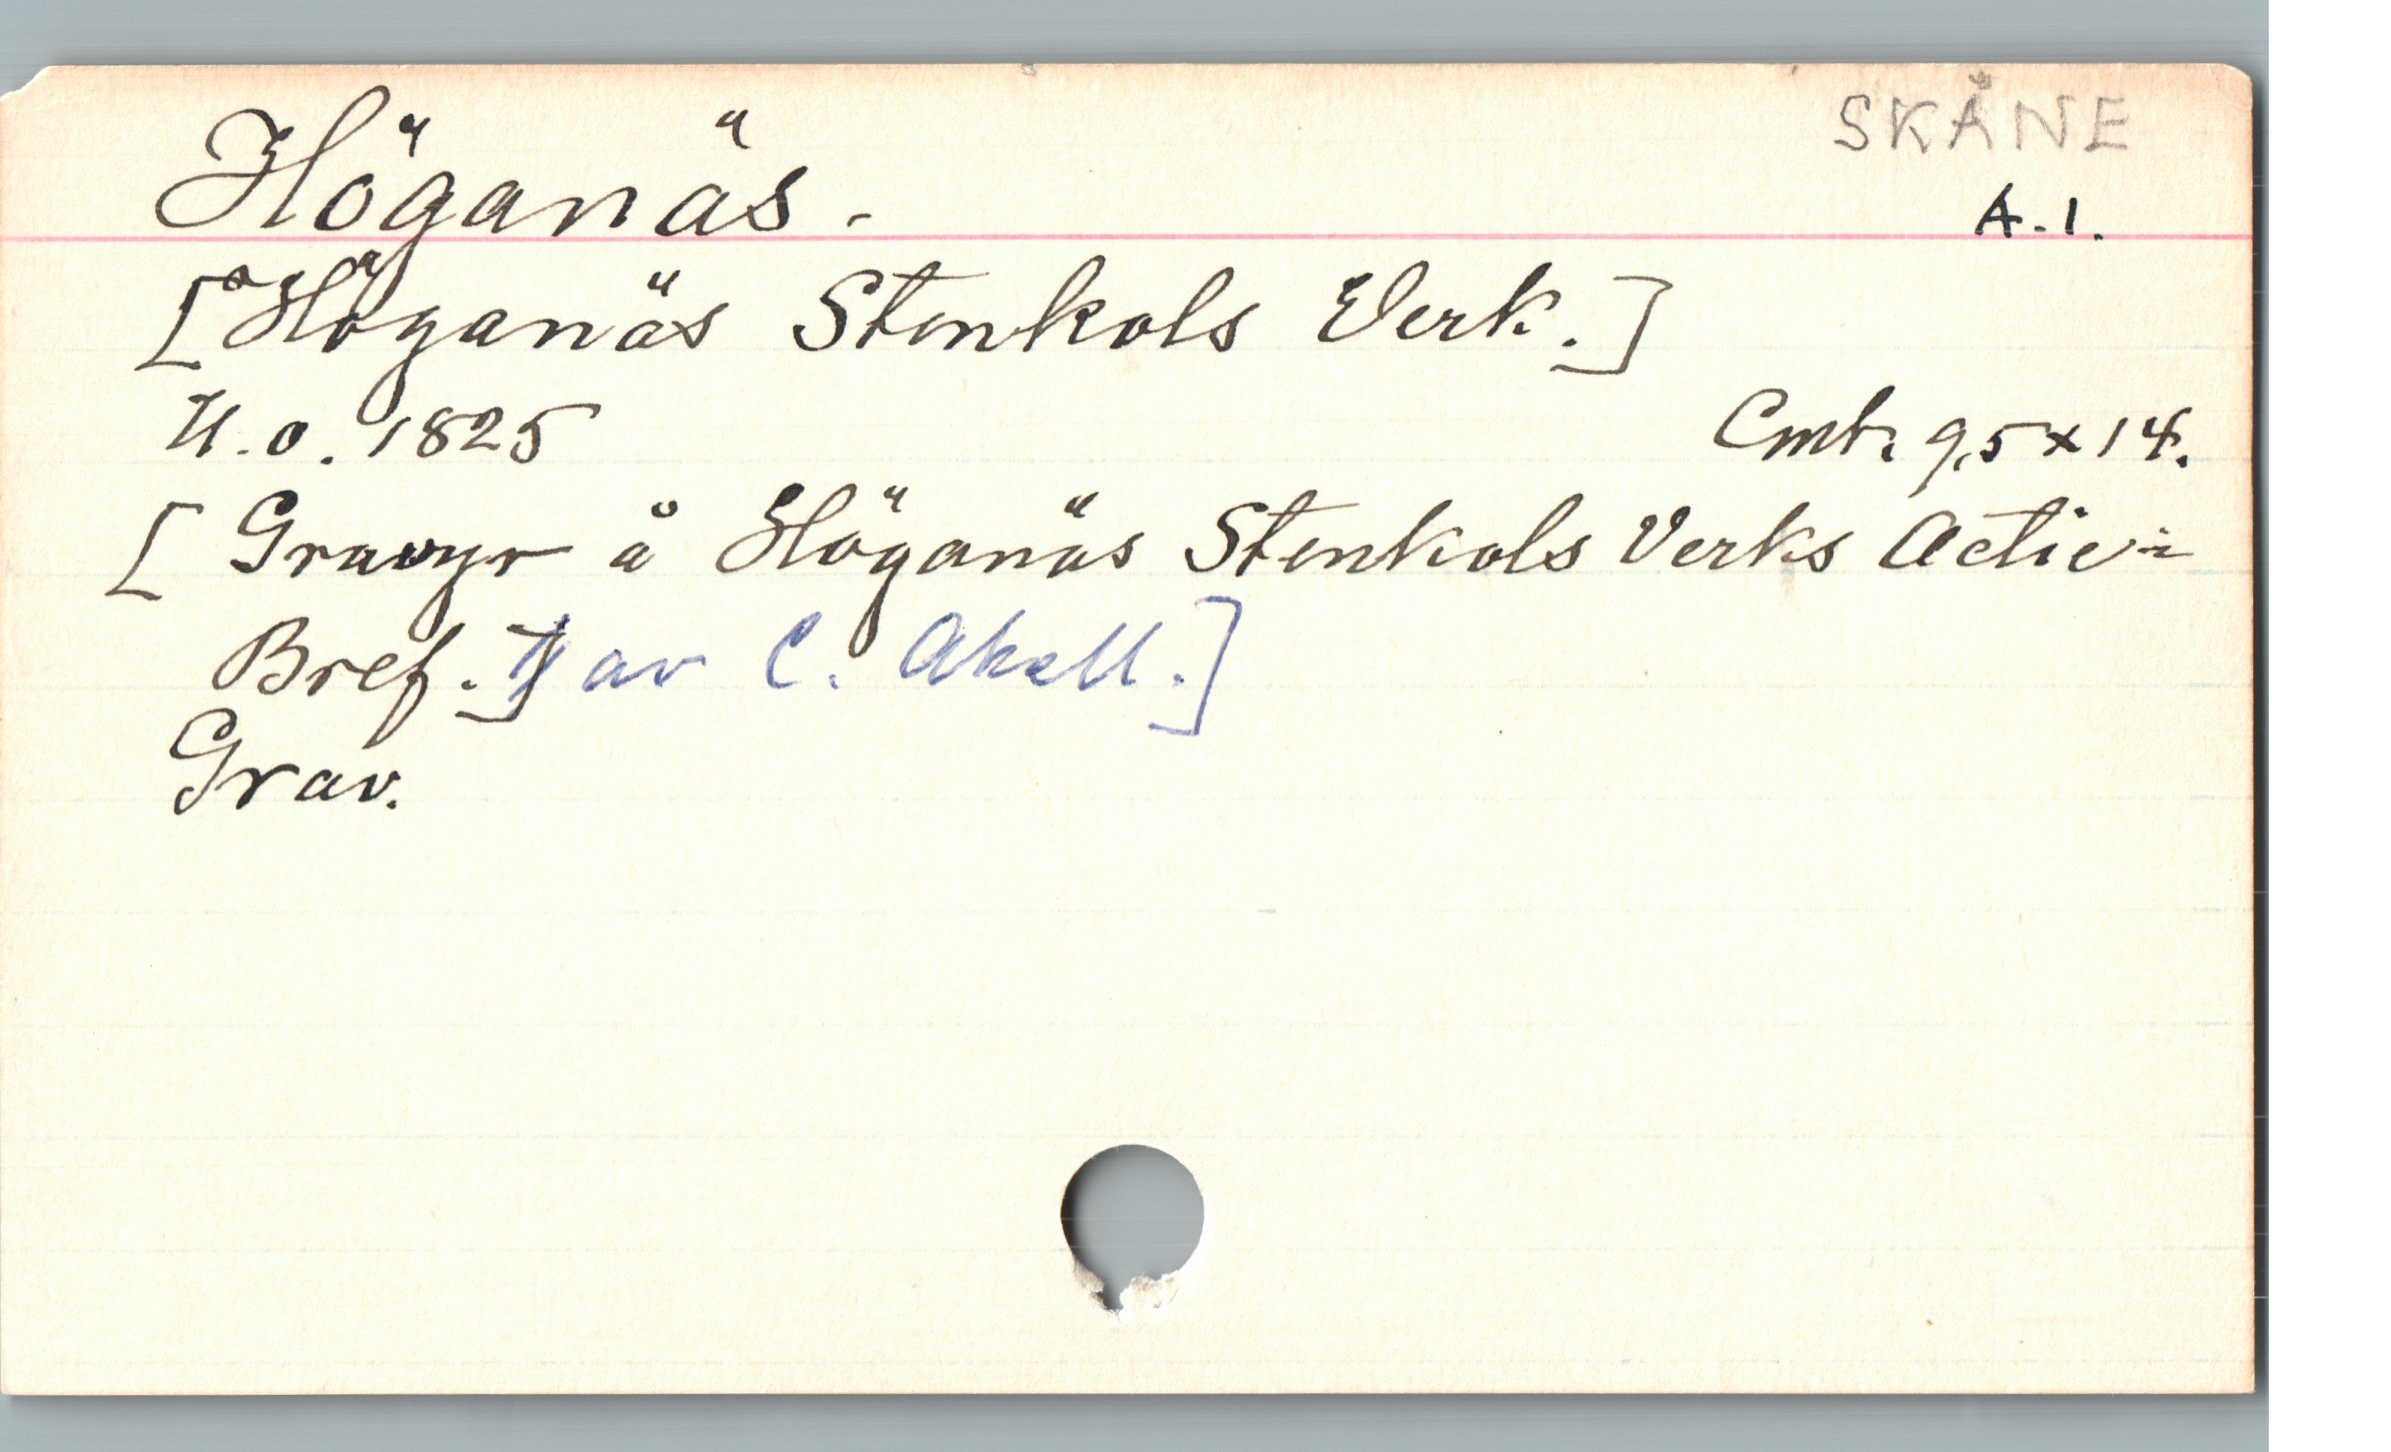 SKÅNE
Höganäs.
A.1.
[Höganäs Stenkols Verk.]
U.o. 1825
Cmt. 9,5 x 14.
[Gravyr å Höganäs Stenkols Verks Actie=
Bref.] av C. Akrell.]
Grav.